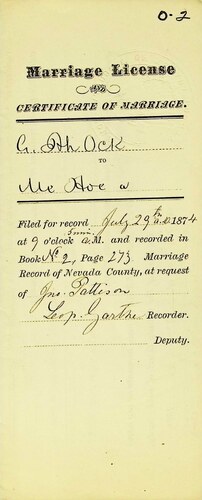 O-2
Marriage License
AND
CERTIFICATE OF MARRIAGE.
G. Ah Ock
TO
Me Hoe a
Filed for record July 29th A.D. 1874
at 9 o'clock 5 min. a.M. and recorded in
Book No 2, Page 273 Marriage
Record of Nevada County, at request
of Jno. Pattison
Leop. Garthe Recorder.
Deputy.